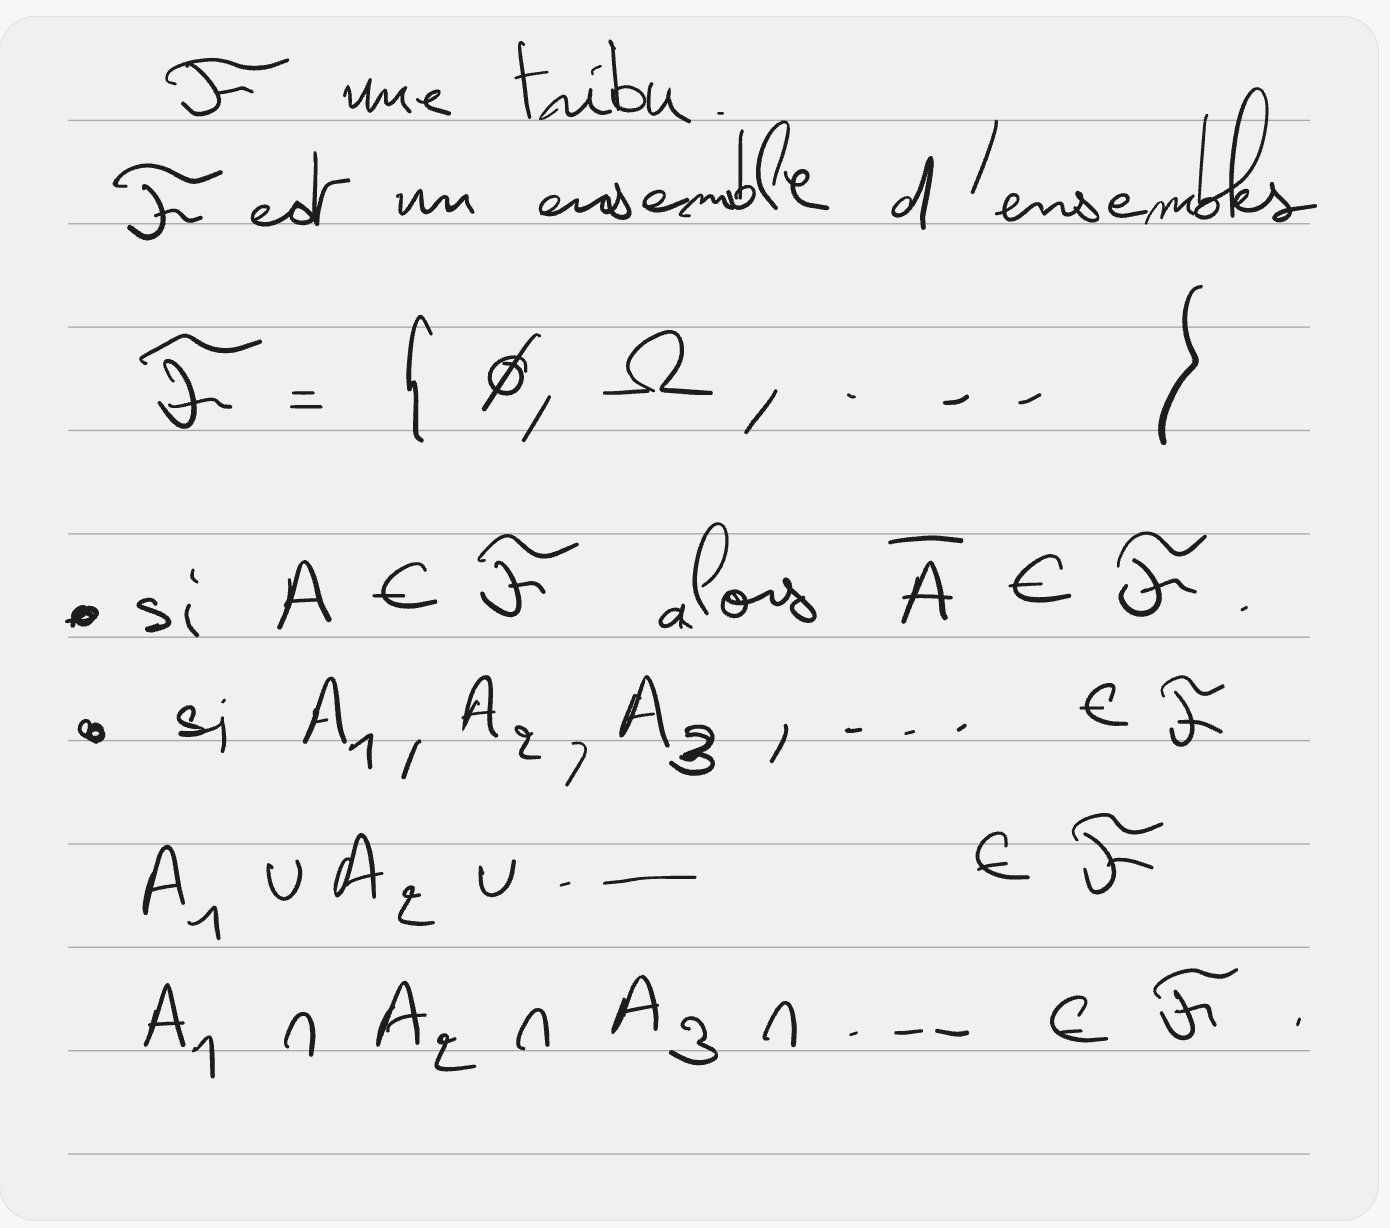 ℱ une tribu.
ℱ est un ensemble d'ensembles
ℱ = { ∅, Ω, . - - }
• si A ∈ ℱ alors A̅ ∈ ℱ.
• si A₁, A₂, A₃, - . . . ∈ ℱ
A₁ ∪ A₂ ∪ . — ∈ ℱ
A₁ ∩ A₂ ∩ A₃ ∩ . - - ∈ ℱ.